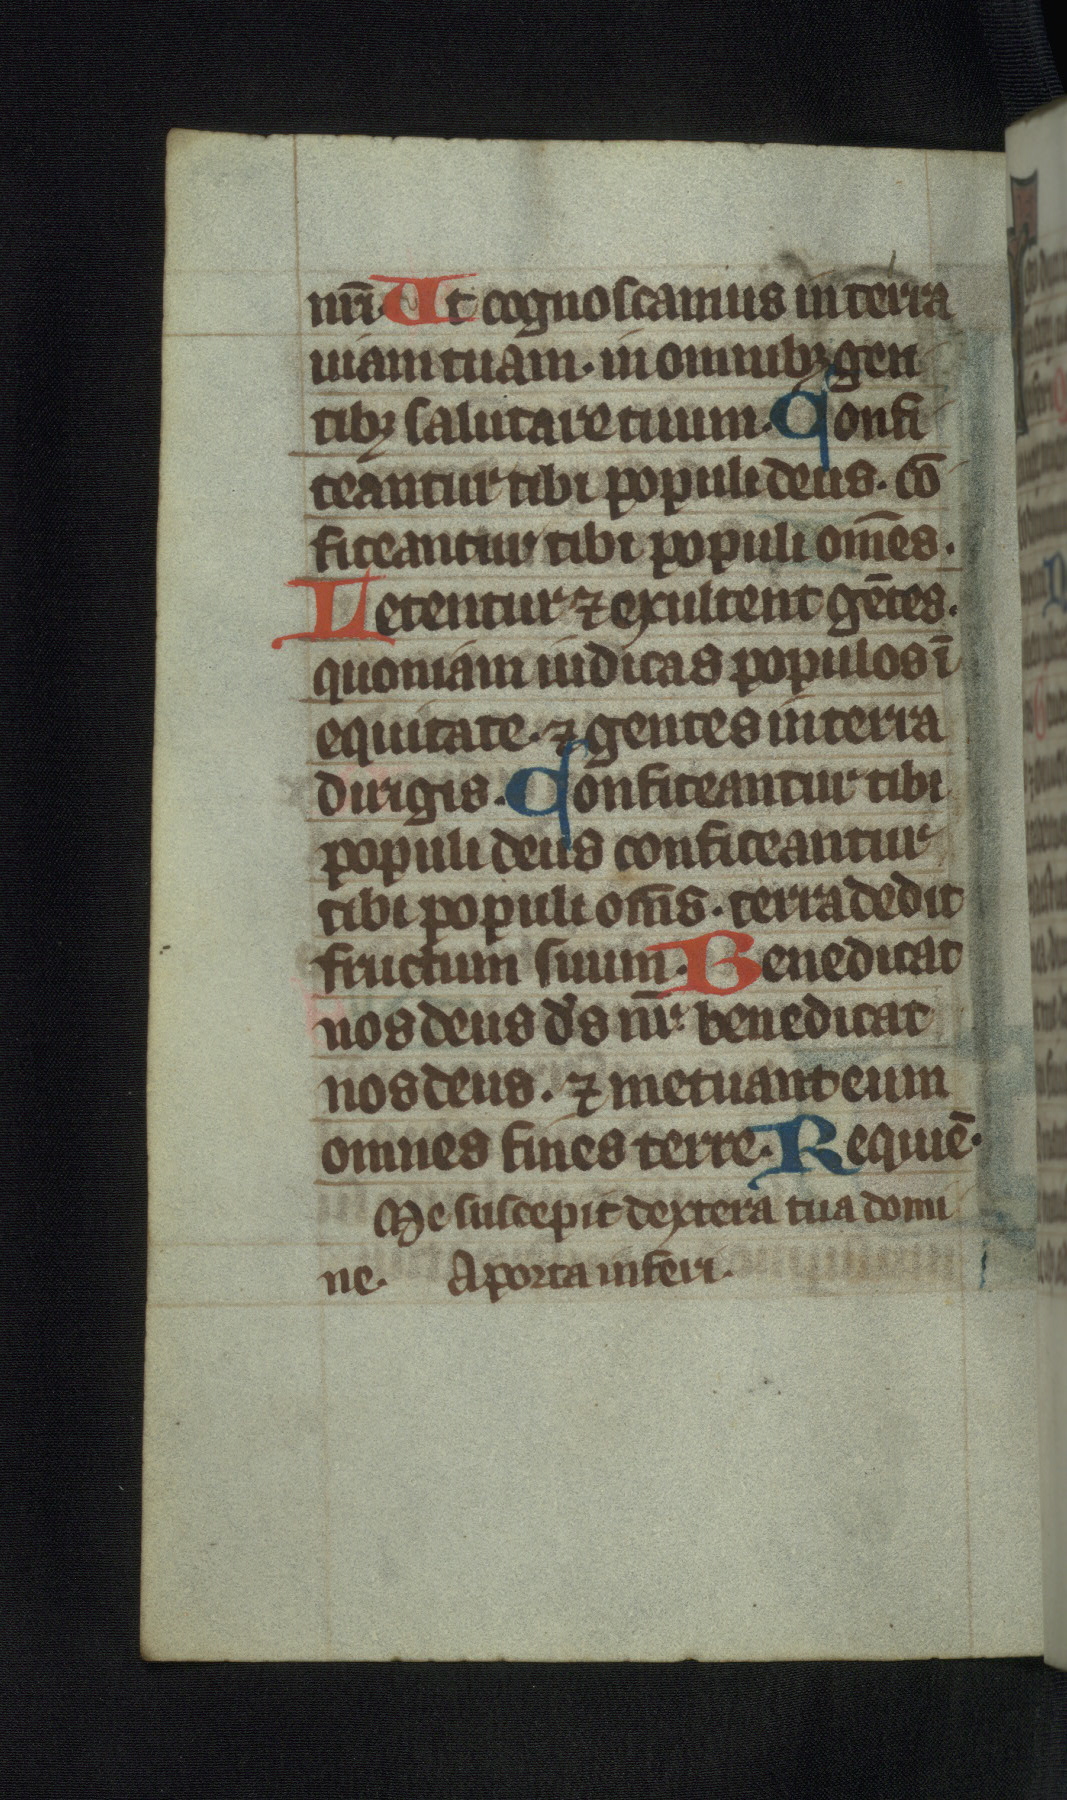 nr̄i. Ut cognoscamus in terra
uiam tuam. in omnibꝫ gen
tibꝫ salutare tuum. Confi
teantur tibi populi deus. cō
fiteantur tibi populi om̄es.
Letentur ⁊ exultent gētes.
quoniam iudicas populos ī
equitate. ⁊ gentes in terra
dirigis. Confiteantur tibi
populi deus confiteantur
tibi populi om̄s. terra dedit
fructum suum. Benedicat
nos deus d̄s nr̄. benedicat
nos deus. ⁊ metuant eum
omnes fines terre. Requiē.
Me suscepit dextera tua domi
ne. A porta inferi.